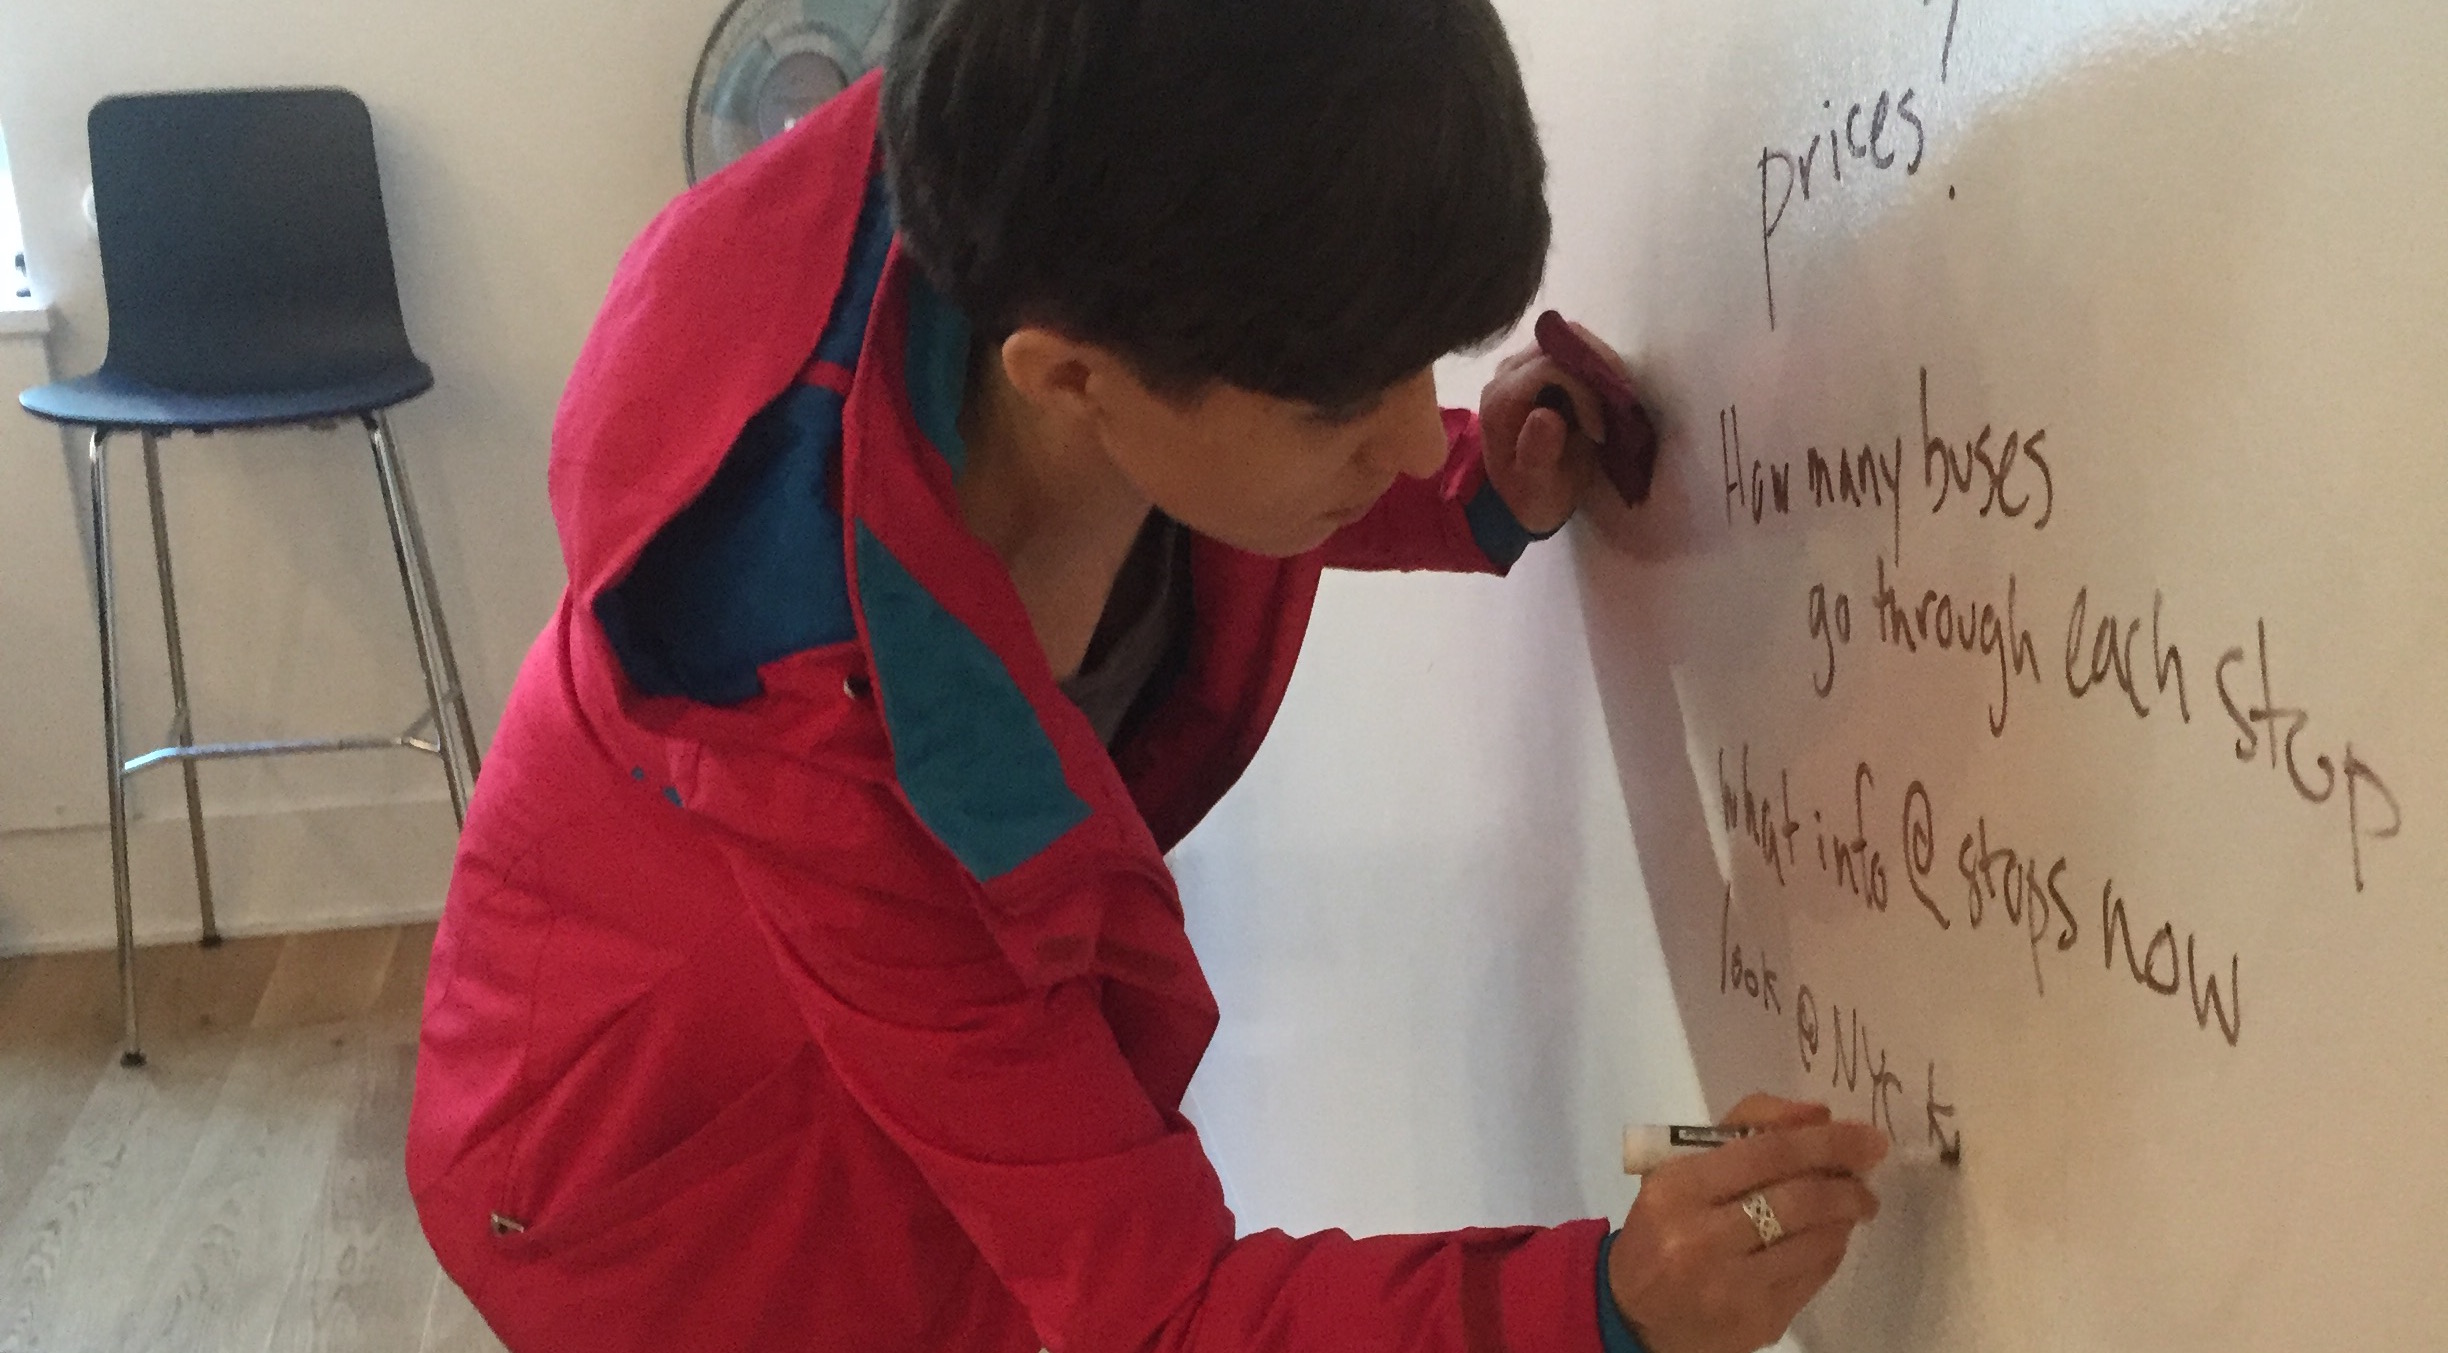 prices?
How many buses
go through each stop
what info @ stops now
look @ NYC